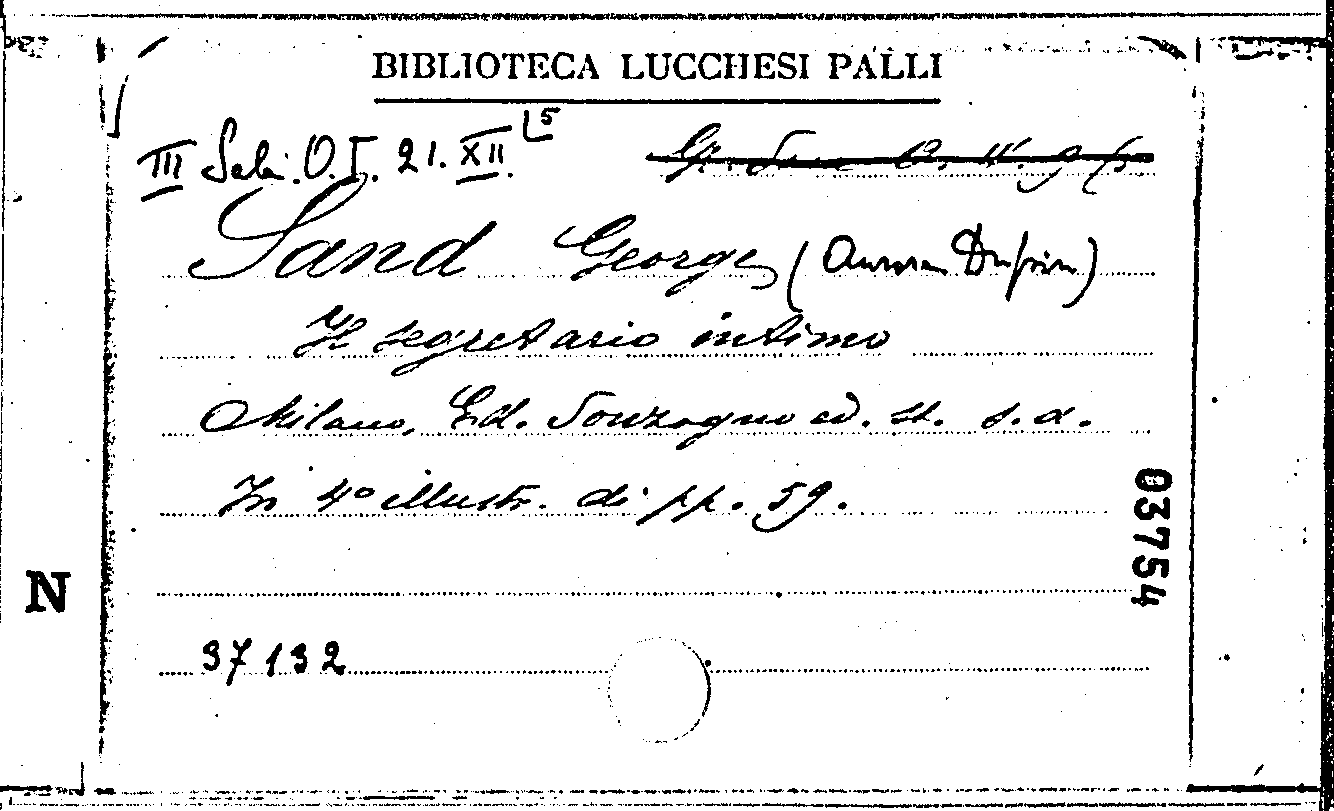 BIBLIOTECA LUCCHESI PALLI
III Sala. O. I. 21. XII. 5
Sand George (Aurora Dupin)
Il segretario intimo
Milano, Ed. Sonzogno ed. st. s. d.
In 4° illustr. di pp. 59.
03754
N
37132